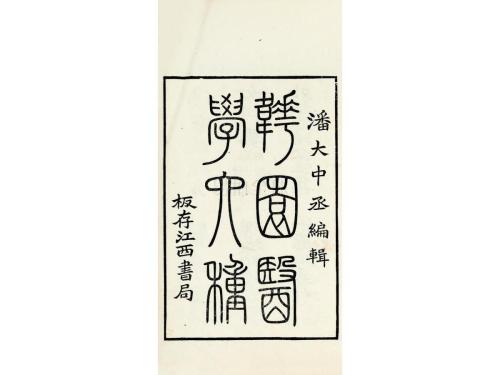 潘大中丞編輯
韡園醫
學六種
板存江西書局